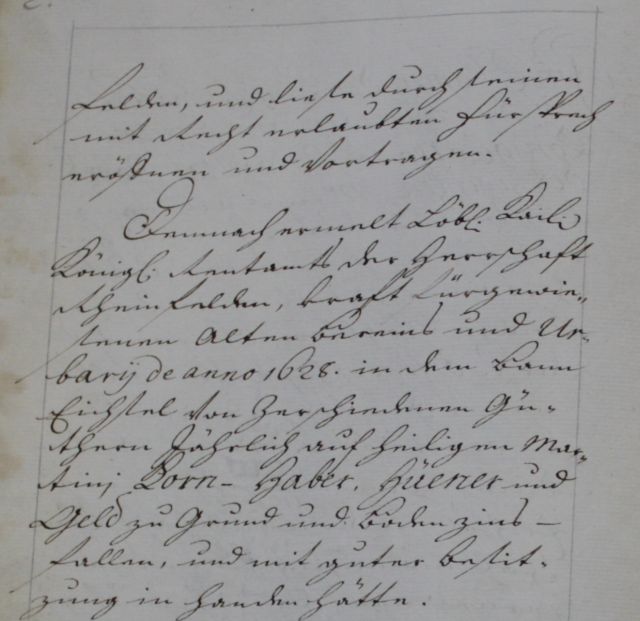 felden, und liese durch seinen
mit Recht erlaubten Fürsprech
eröffnen und Vortragen.
Demnach ermelt Löbl: Kail:
Königl: Rentamts der Herrschaft
Rheinfelden, kraft fürgewie„
senen Alten Bereins und Ur„
barij de anno 1628. in dem Bann
Eichsel von Zerschiedenen Gü„
thern Jährlich auf heiligen Mar„
tinj Korn- Haber, Hüener und
Geld zu Grund und Boden zins –
fallen, und mit guter besit„
zung in handen hätte.